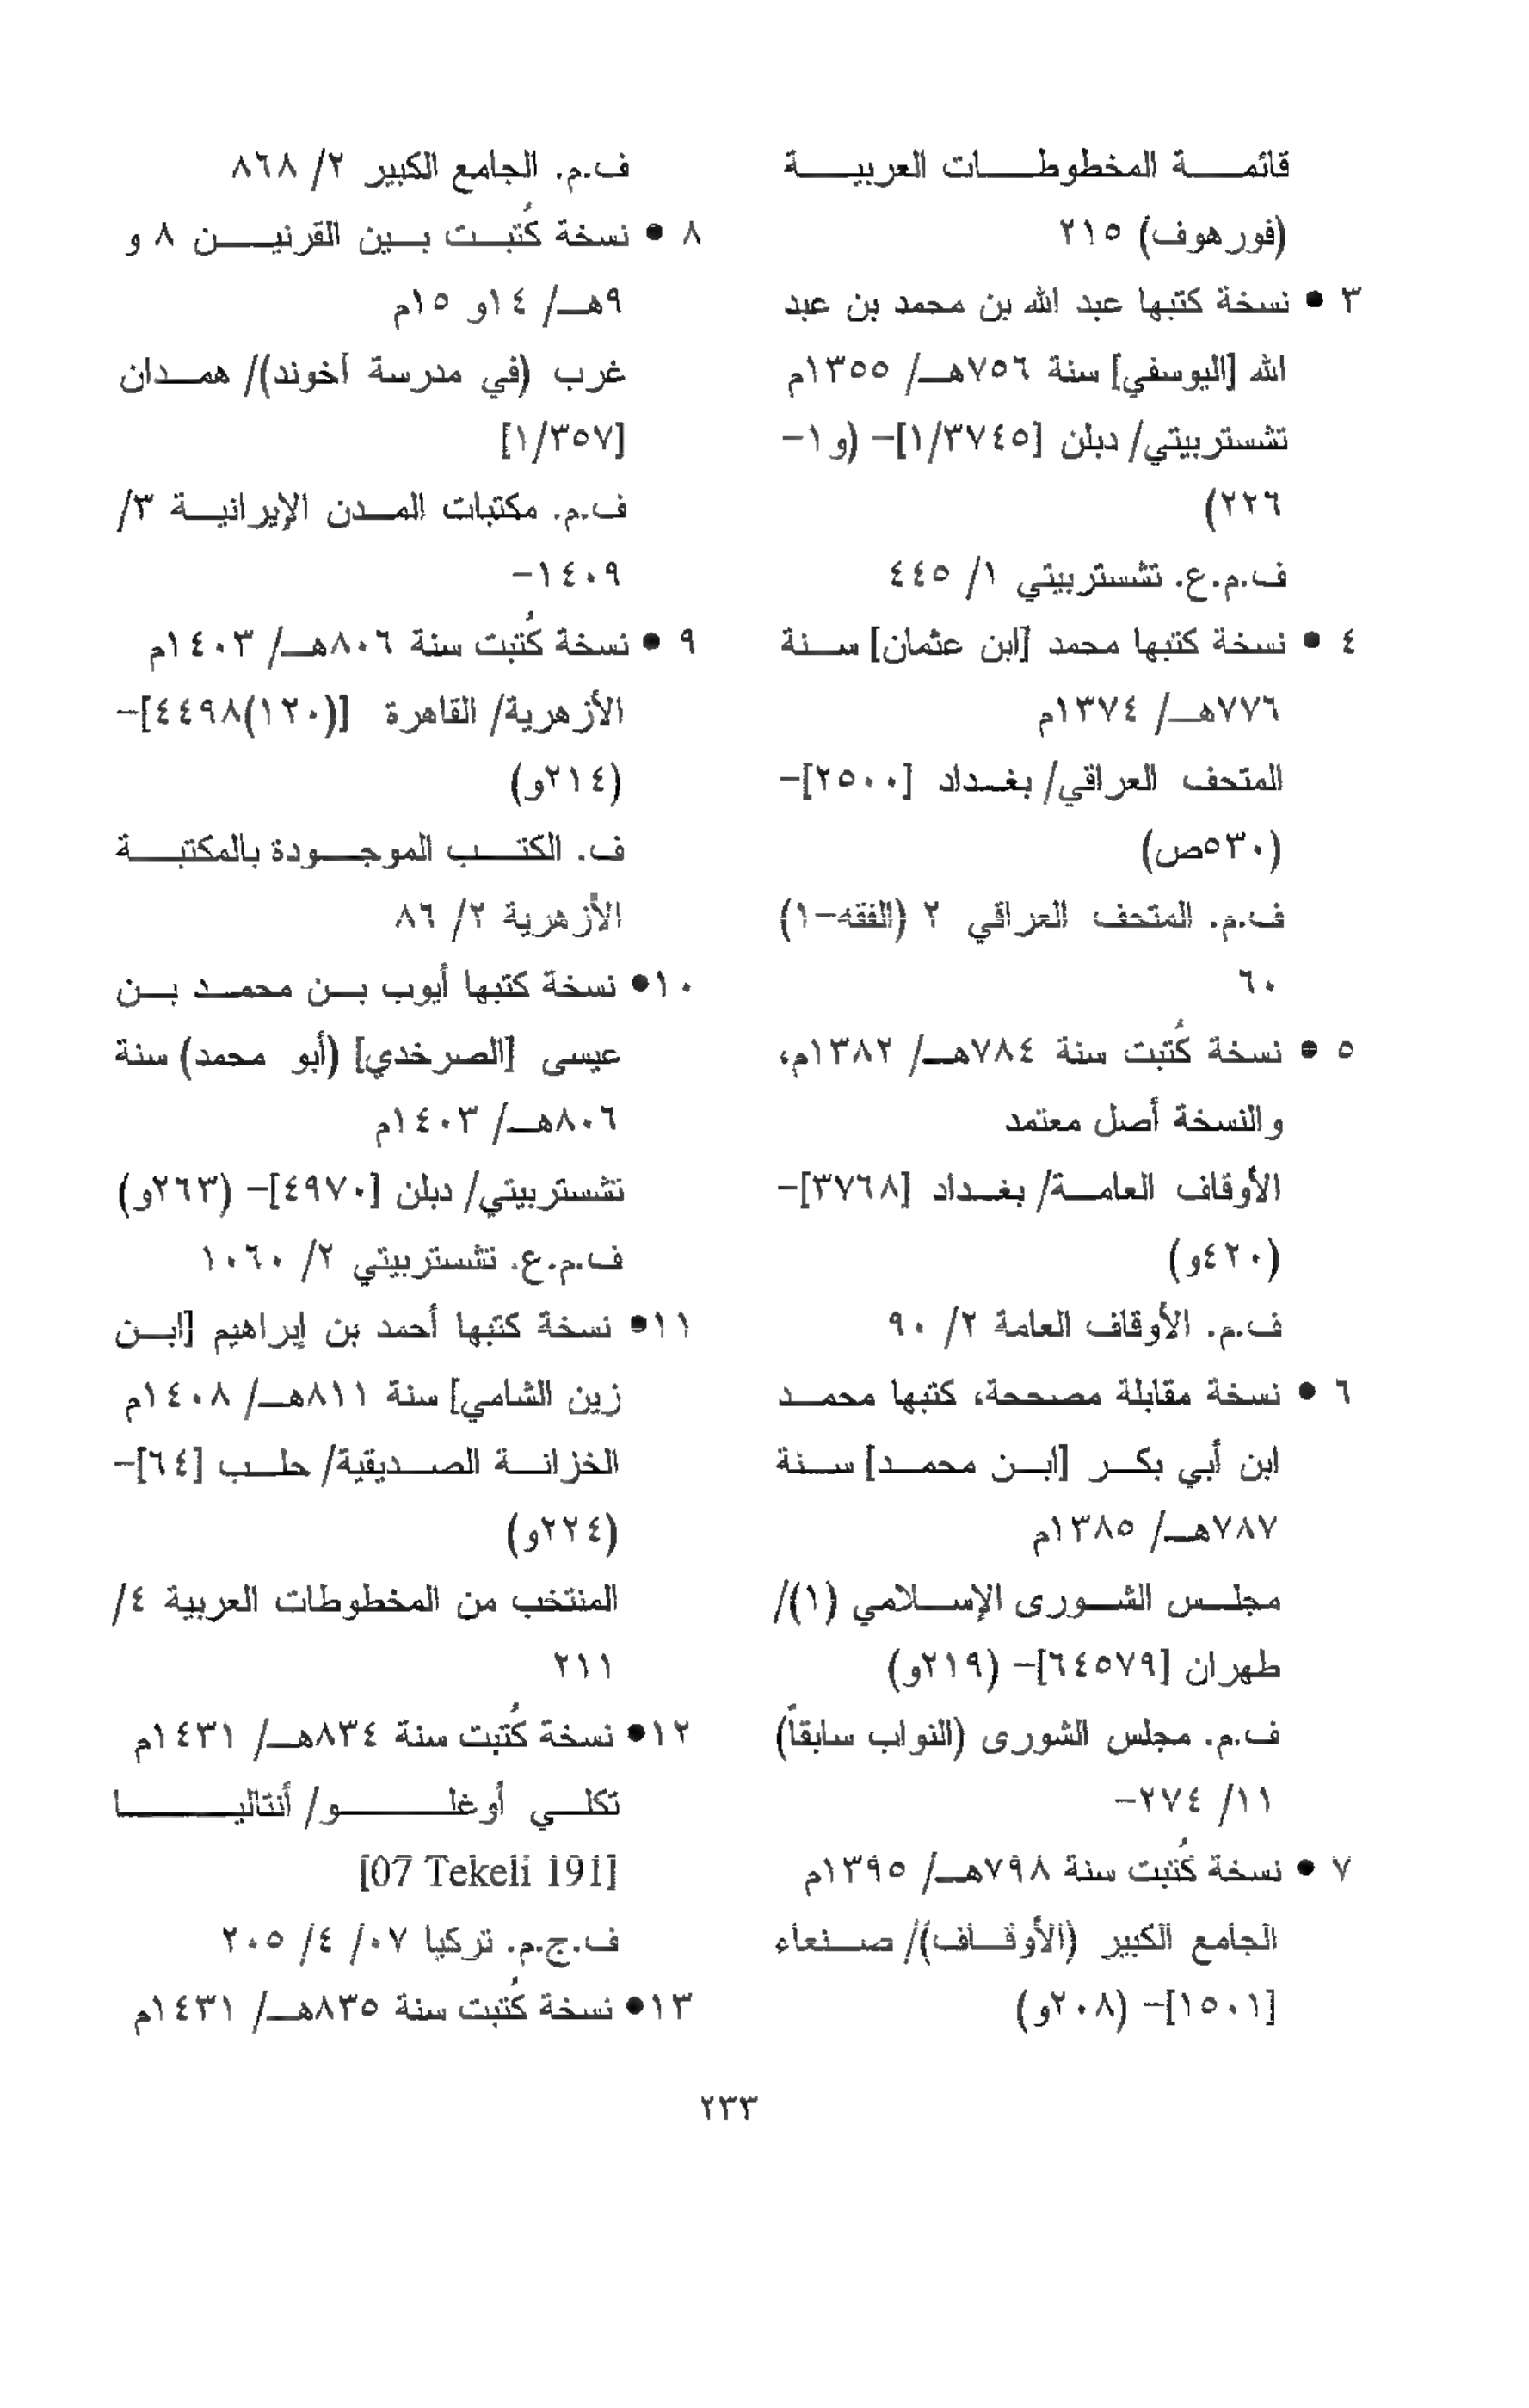 قائمة المخطوطات العربية
(فورهوف) ٢١٥
٣ • نسخة كتبها عبد الله بن محمد بن عبد
الله [اليوسفي] سنة ٧٥٦هـ/ ١٣٥٥م
تشستربيتي/ دبلن [١/٣٧٤٥]- (و١-
٢٢٦)
ف.م.ع. تشستربيتي ١/ ٤٤٥
٤ • نسخة كتبها محمد [ابن عثمان] سنة
٧٧٦هـ/ ١٣٧٤م
المتحف العراقي/ بغداد [٢٥٠٠]-
(٥٣٠ص)
ف.م. المتحف العراقي ٢ (الفقه-١)
٦٠
٥ • نسخة كُتبت سنة ٧٨٤هـ/ ١٣٨٢م،
والنسخة أصل معتمد
الأوقاف العامة/ بغداد [٣٧٦٨]-
(٤٢٠و)
ف.م. الأوقاف العامة ٢/ ٩٠
٦ • نسخة مقابلة مصححة، كتبها محمد
ابن أبي بكر [ابن محمد] سنة
٧٨٧هـ/ ١٣٨٥م
مجلس الشورى الإسلامي (١)/
طهران [٦٤٥٧٩]- (٢١٩و)
ف.م. مجلس الشورى (النواب سابقاً)
١١/ ٢٧٤-
٧ • نسخة كُتبت سنة ٧٩٨هـ/ ١٣٩٥م
الجامع الكبير (الأوقاف)/ صنعاء
[١٥٠١]- (٢٠٨و)
ف.م. الجامع الكبير ٢/ ٨٦٨
٨ • نسخة كُتبت بين القرنين ٨ و
٩هـ/ ١٤و ١٥م
غرب (في مدرسة آخوند)/ همدان
[١/٣٥٧]
ف.م. مكتبات المدن الإيرانية ٣/
١٤٠٩-
٩ • نسخة كُتبت سنة ٨٠٦هـ/ ١٤٠٣م
الأزهرية/ القاهرة [(١٢٠)٤٤٩٨]-
(٢١٤و)
ف. الكتب الموجودة بالمكتبة
الأزهرية ٢/ ٨٦
١٠• نسخة كتبها أيوب بن محمد بن
عيسى [الصرخدي] (أبو محمد) سنة
٨٠٦هـ/ ١٤٠٣م
تشستربيتي/ دبلن [٤٩٧٠]- (٢٦٣و)
ف.م.ع. تشستربيتي ٢/ ١٠٦٠
١١• نسخة كتبها أحمد بن إبراهيم [ابن
زين الشامي] سنة ٨١١هـ/ ١٤٠٨م
الخزانة الصديقية/ حلب [٦٤]-
(٢٢٤و)
المنتخب من المخطوطات العربية ٤/
٢١١
١٢• نسخة كُتبت سنة ٨٣٤هـ/ ١٤٣١م
تكلي أوغلو/ أنتاليا
[07 Tekeli 191]
ف.ج.م. تركيا ٠٧/ ٤/ ٢٠٥
١٣• نسخة كُتبت سنة ٨٣٥هـ/ ١٤٣١م
٢٣٣